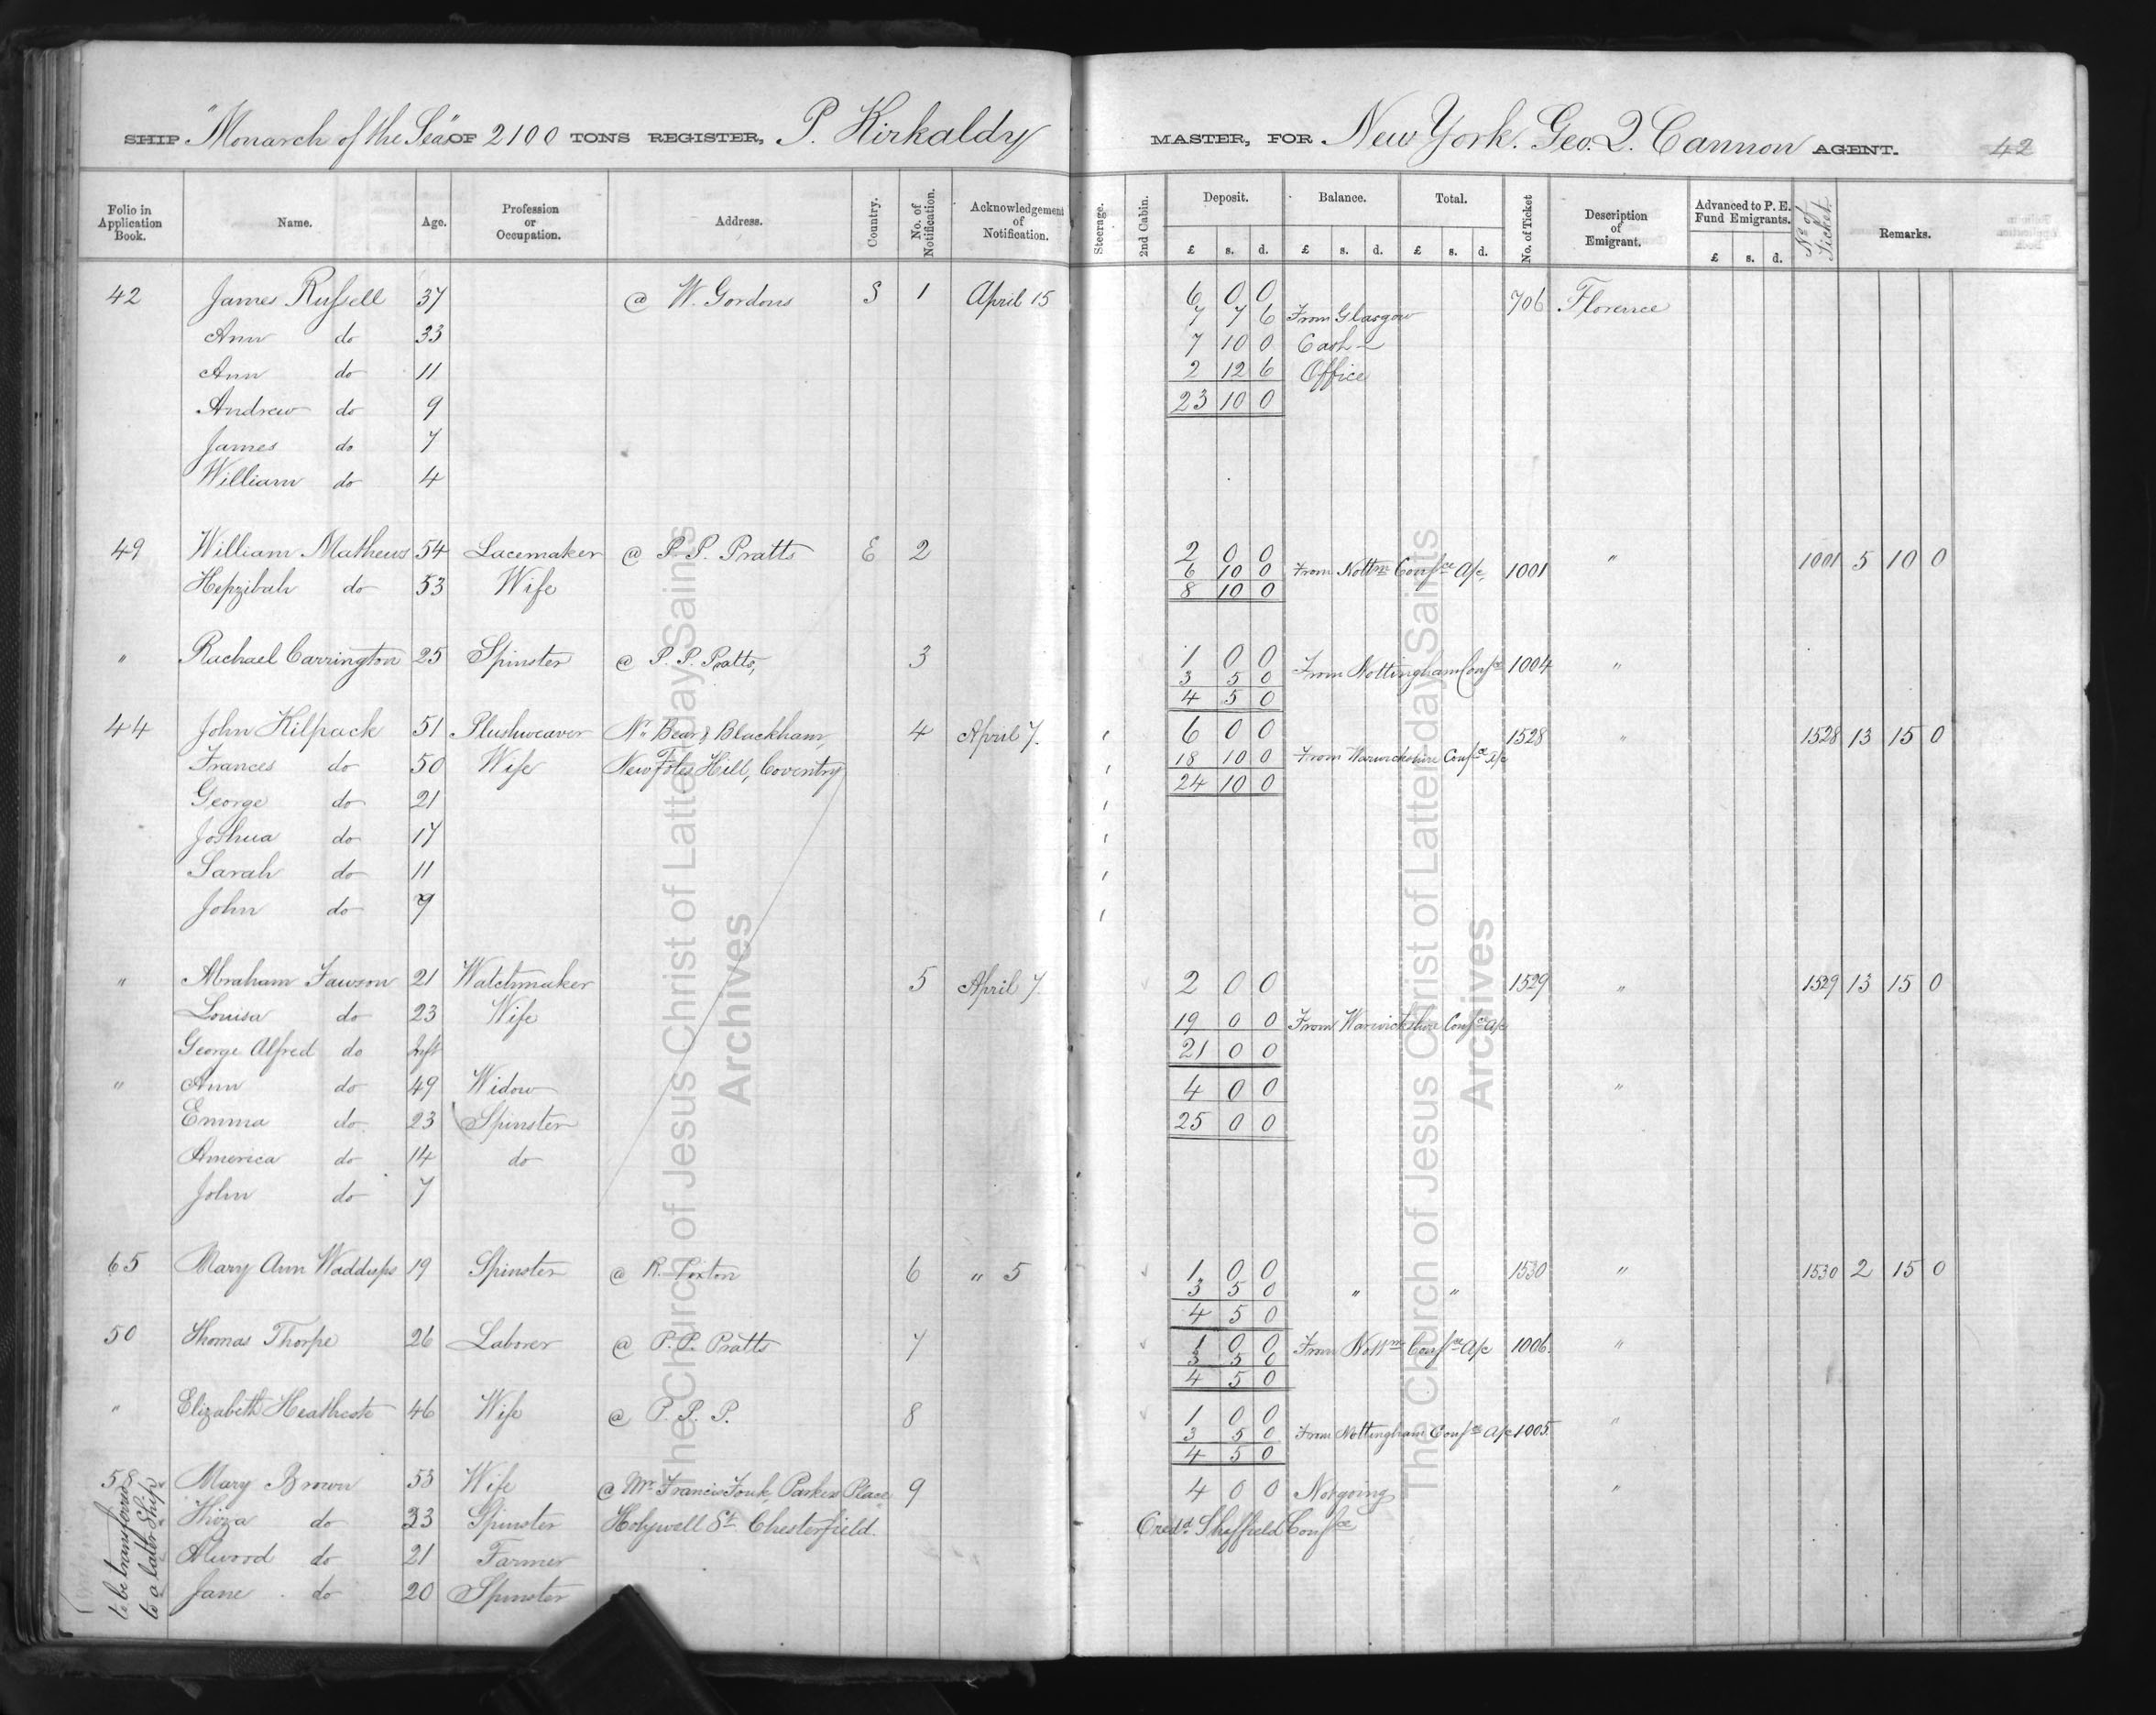 SHIP "Monarch of the Sea" OF 2100 TONS REGISTER, P. Kirkaldy MASTER, FOR New York. Geo. Q. Cannon AGENT. 42
Folio in Application Book. Name. Age. Profession or Occupation. Address. Country. No. of Notification. Acknowledgement of Notification. Steerage. 2nd Cabin. Deposit. Balance. Total. No. of Ticket Description of Emigrant. Advanced to P. E. Fund Emigrants. No. of Ticket. Remarks.
£ s. d. £ s. d. £ s. d. £ s. d.
42 James Russell 37 @ W. Gordons S 1 April 15 6 0 0 706 Florence
7 7 6 From Glasgow
Ann do 33 7 10 0 Cash
Ann do 11 2 12 6 Office
Andrew do 9 23 10 0
James do 7
William do 4
49 William Mathews 54 Lacemaker @ P. P. Pratts E 2 2 0 0 " 1001 5 10 0
6 10 0 From Nottm Confce A/c, 1001
Hepzibah do 53 Wife 8 10 0
" Rachael Carrington 25 Spinster @ P. P. Pratts, 3 1 0 0 1004 "
3 5 0 From Nottingham Confce
4 5 0
44 John Kilpack 51 Plushweaver Nr Bear & Blackham, 4 April 7. 6 0 0 1528 " 1528 13 15 0
Frances do 50 Wife New Foles Hill, Coventry 18 10 0 From Warwickshire Confce A/c
24 10 0
George do 21
Joshua do 17
Sarah do 11
John do 9
" Abraham Fawson 21 Watchmaker 5 April 7 2 0 0 1529 " 1529 13 15 0
Louisa do 23 Wife 19 0 0 From Warwickshire Confce A/c
George Alfred do Inft 21 0 0
" Ann do 49 Widow 4 0 0 "
Emma do 23 Spinster 25 0 0
America do 14 do
John do 7
65 Mary Ann Waddups 19 Spinster @ R. Poxton 6 " 5 1 0 0 1530 " 1530 2 15 0
3 5 0 " "
4 5 0
50 Thomas Thorpe 26 Laborer @ P. P. Pratts 7 1 0 0 From Nottm Confce A/c 1006. "
3 5 0
4 5 0
" Elizabeth Heathcote 46 Wife @ P. P. P. 8 1 0 0 "
3 5 0 From Nottingham Confce A/c 1005.
4 5 0
58 Mary Brown 53 Wife @ Mr Francis Fouk, Parkers Place 9 4 0 0 Not going "
Thirza do 23 Spinster Holywell St Chesterfield. Credd Sheffield Confce
Alwood do 21 Farmer
Jane do 20 Spinster
to be transferred
to a later Ship
The Church of Jesus Christ of Latter-day Saints
Archives
The Church of Jesus Christ of Latter-day Saints
Archives